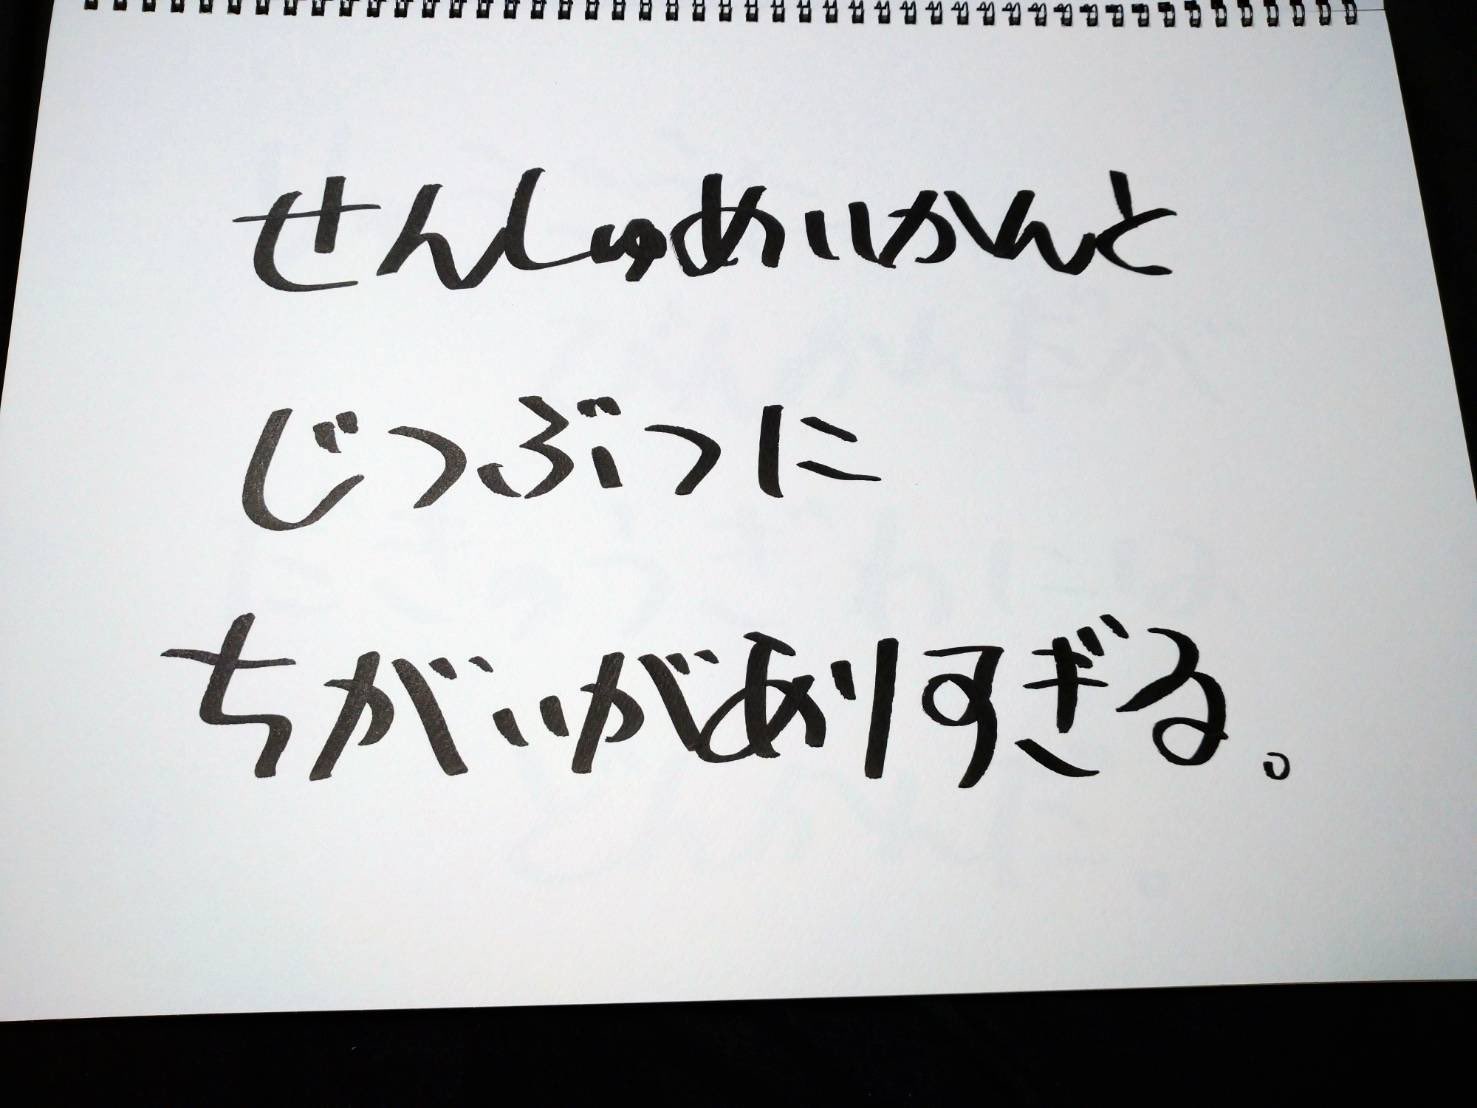 せんしゅめいかんと
じつぶつに
ちがいがありすぎる。